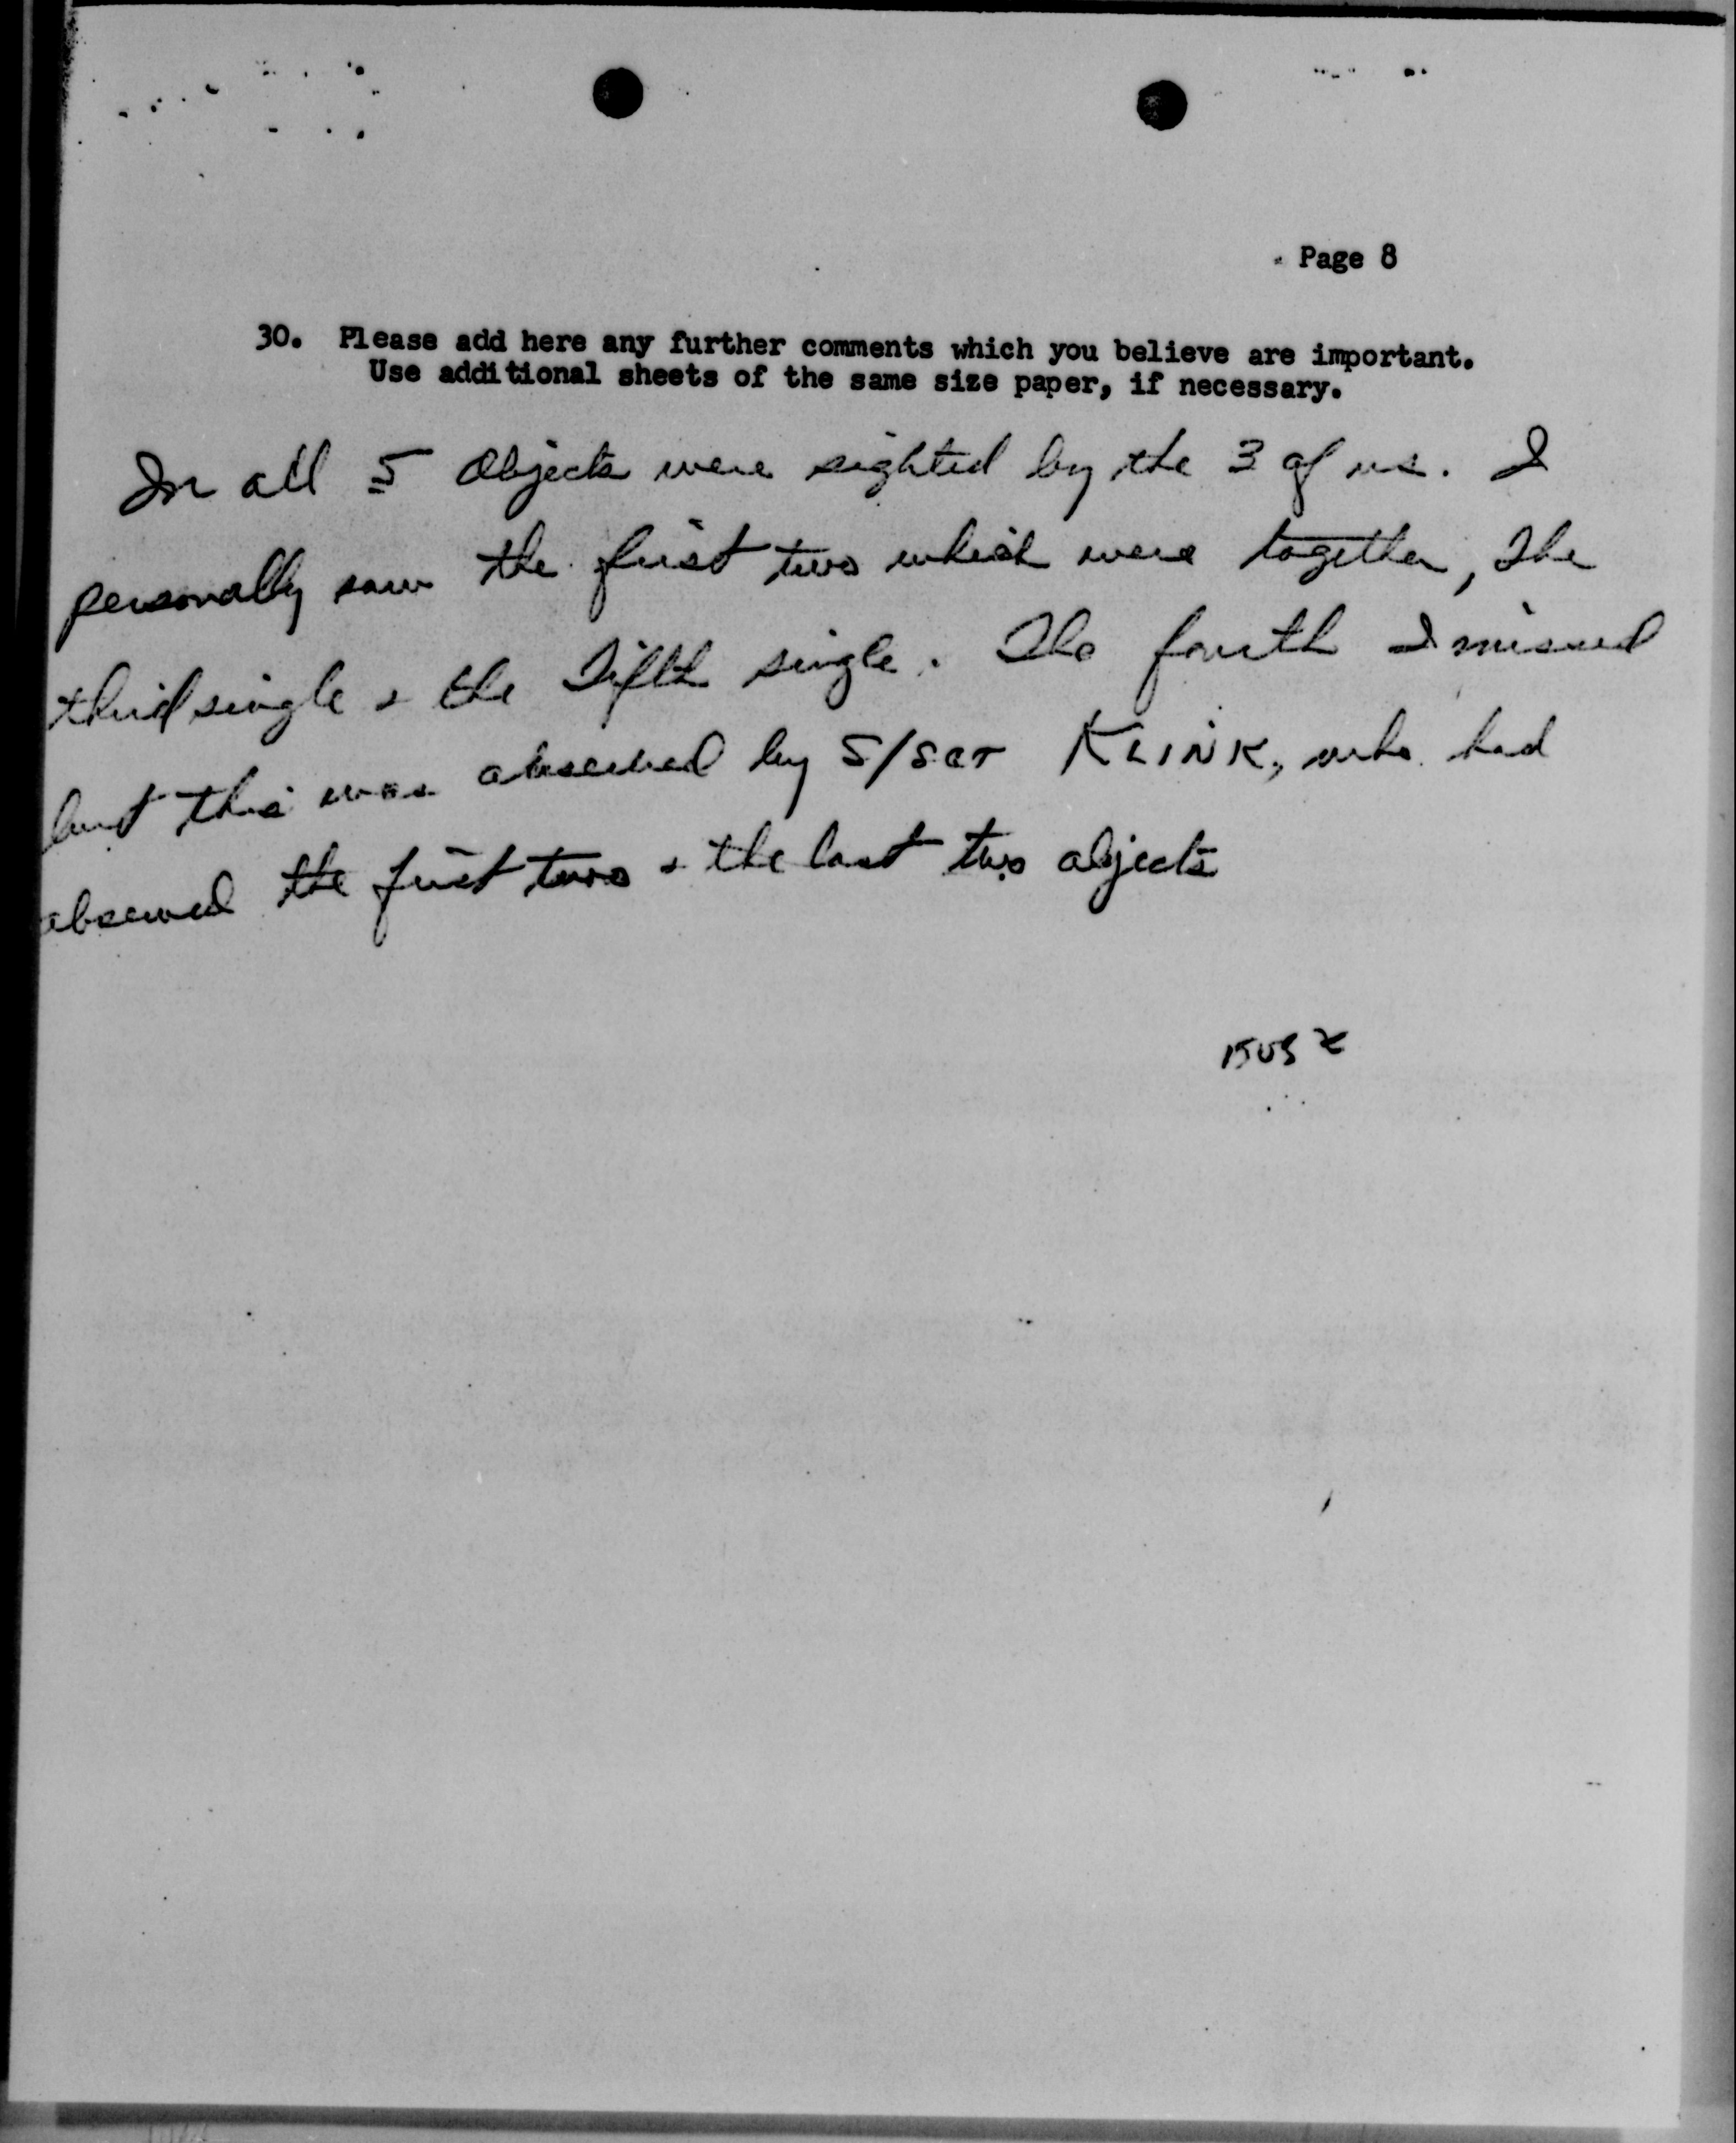 Page 8
30. Please add here any further comments which you believe are important.
Use additional sheets of the same size paper, if necessary.
In all 5 objects were sighted by the 3 of us. I
personally saw the first two which were together, The
third single & the Fifth single. The fourth I missed
but this was observed by S/SGT KLINK, who had
observed the first two & the last two objects
1505 Z